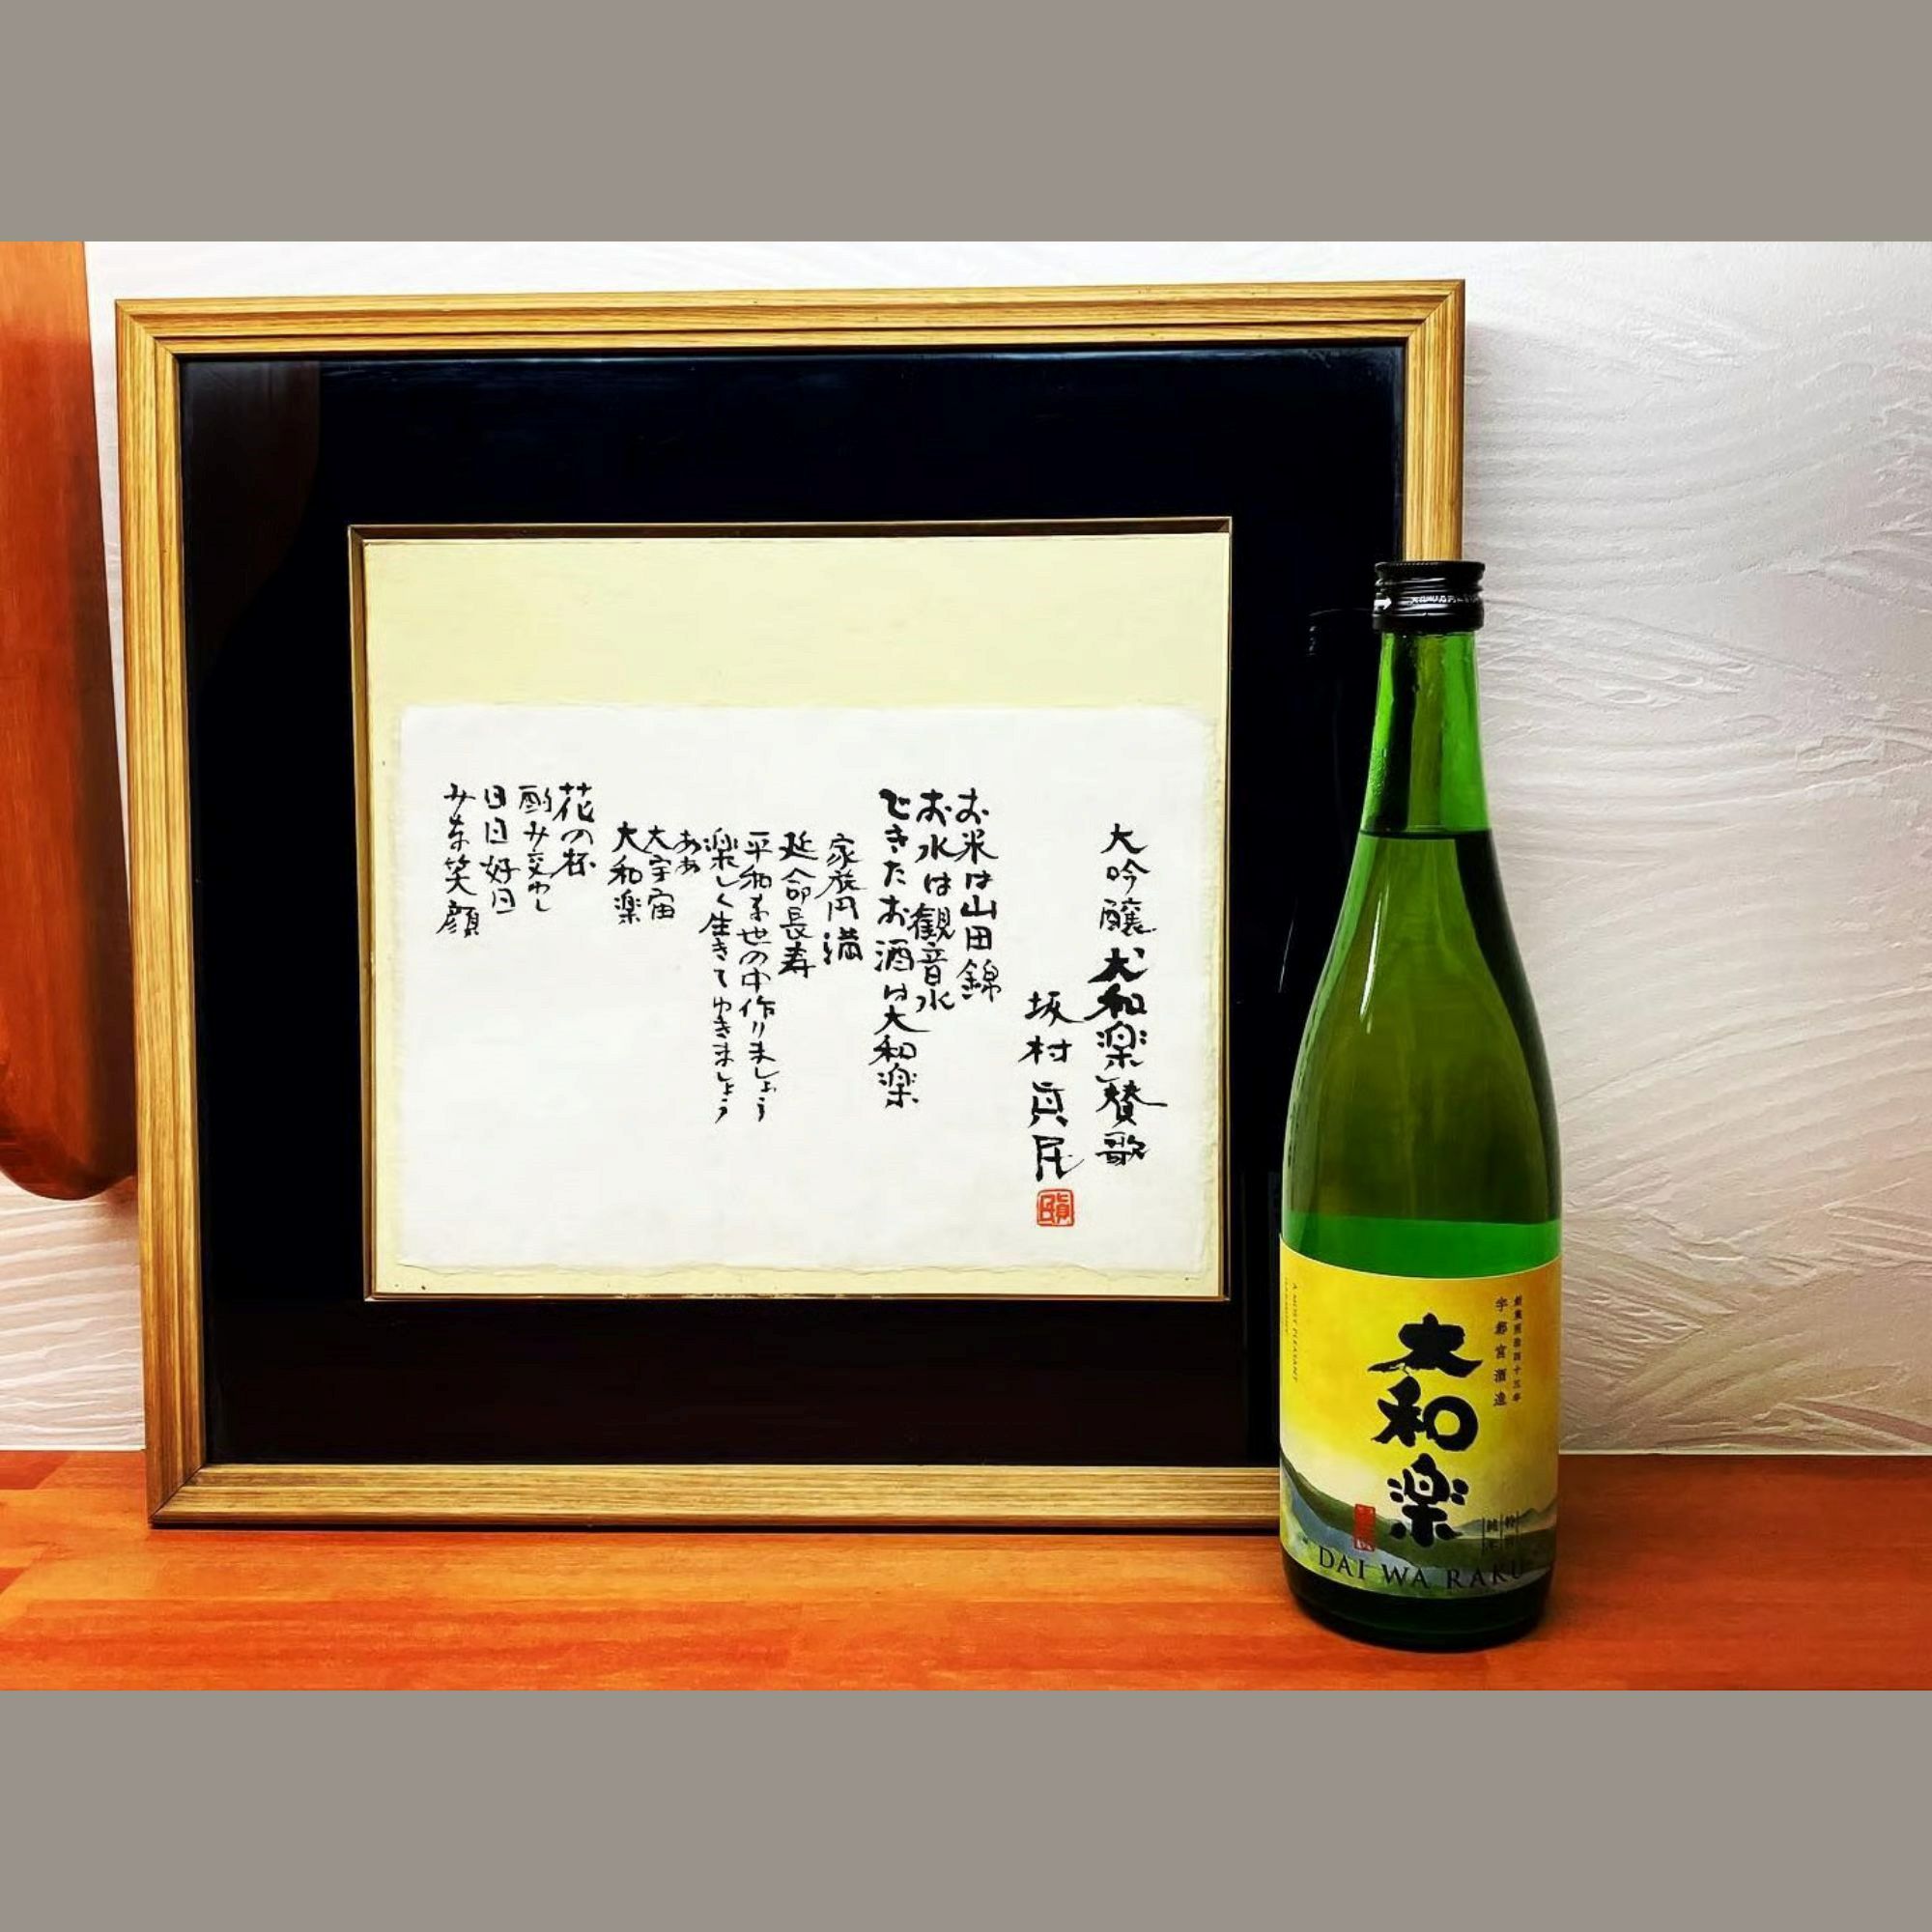 大吟醸 大和楽賛歌
坂村真民
お米は山田錦
お水は観音水
できたお酒は大和楽
家族円満
延命長寿
平和な世の中作りましょう
楽しく生きてゆきましょう
ああ
大宇宙
大和楽
花の杯
酌み交わし
日日好日
みな笑顔
宇都宮酒造
大和楽
DAI WA RAKU
A MOST PLEASANT